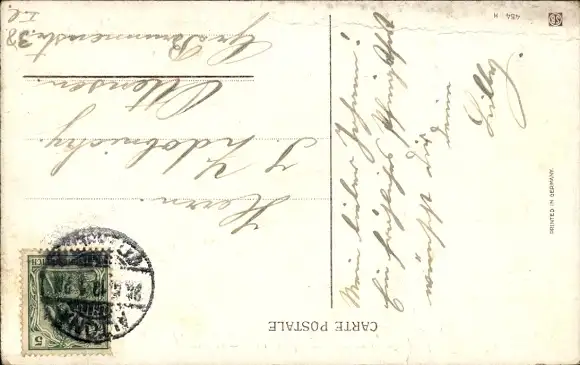 CARTE POSTALE
Mein lieber Johann!
Ein fröhliches Pfingstfest
wünscht Dir
Deine
Lilly.
Herrn
J.
Ottensen.
Gr. Brunnenstr. 38
II
ALTONA
5
PRINTED IN GERMANY
484 H